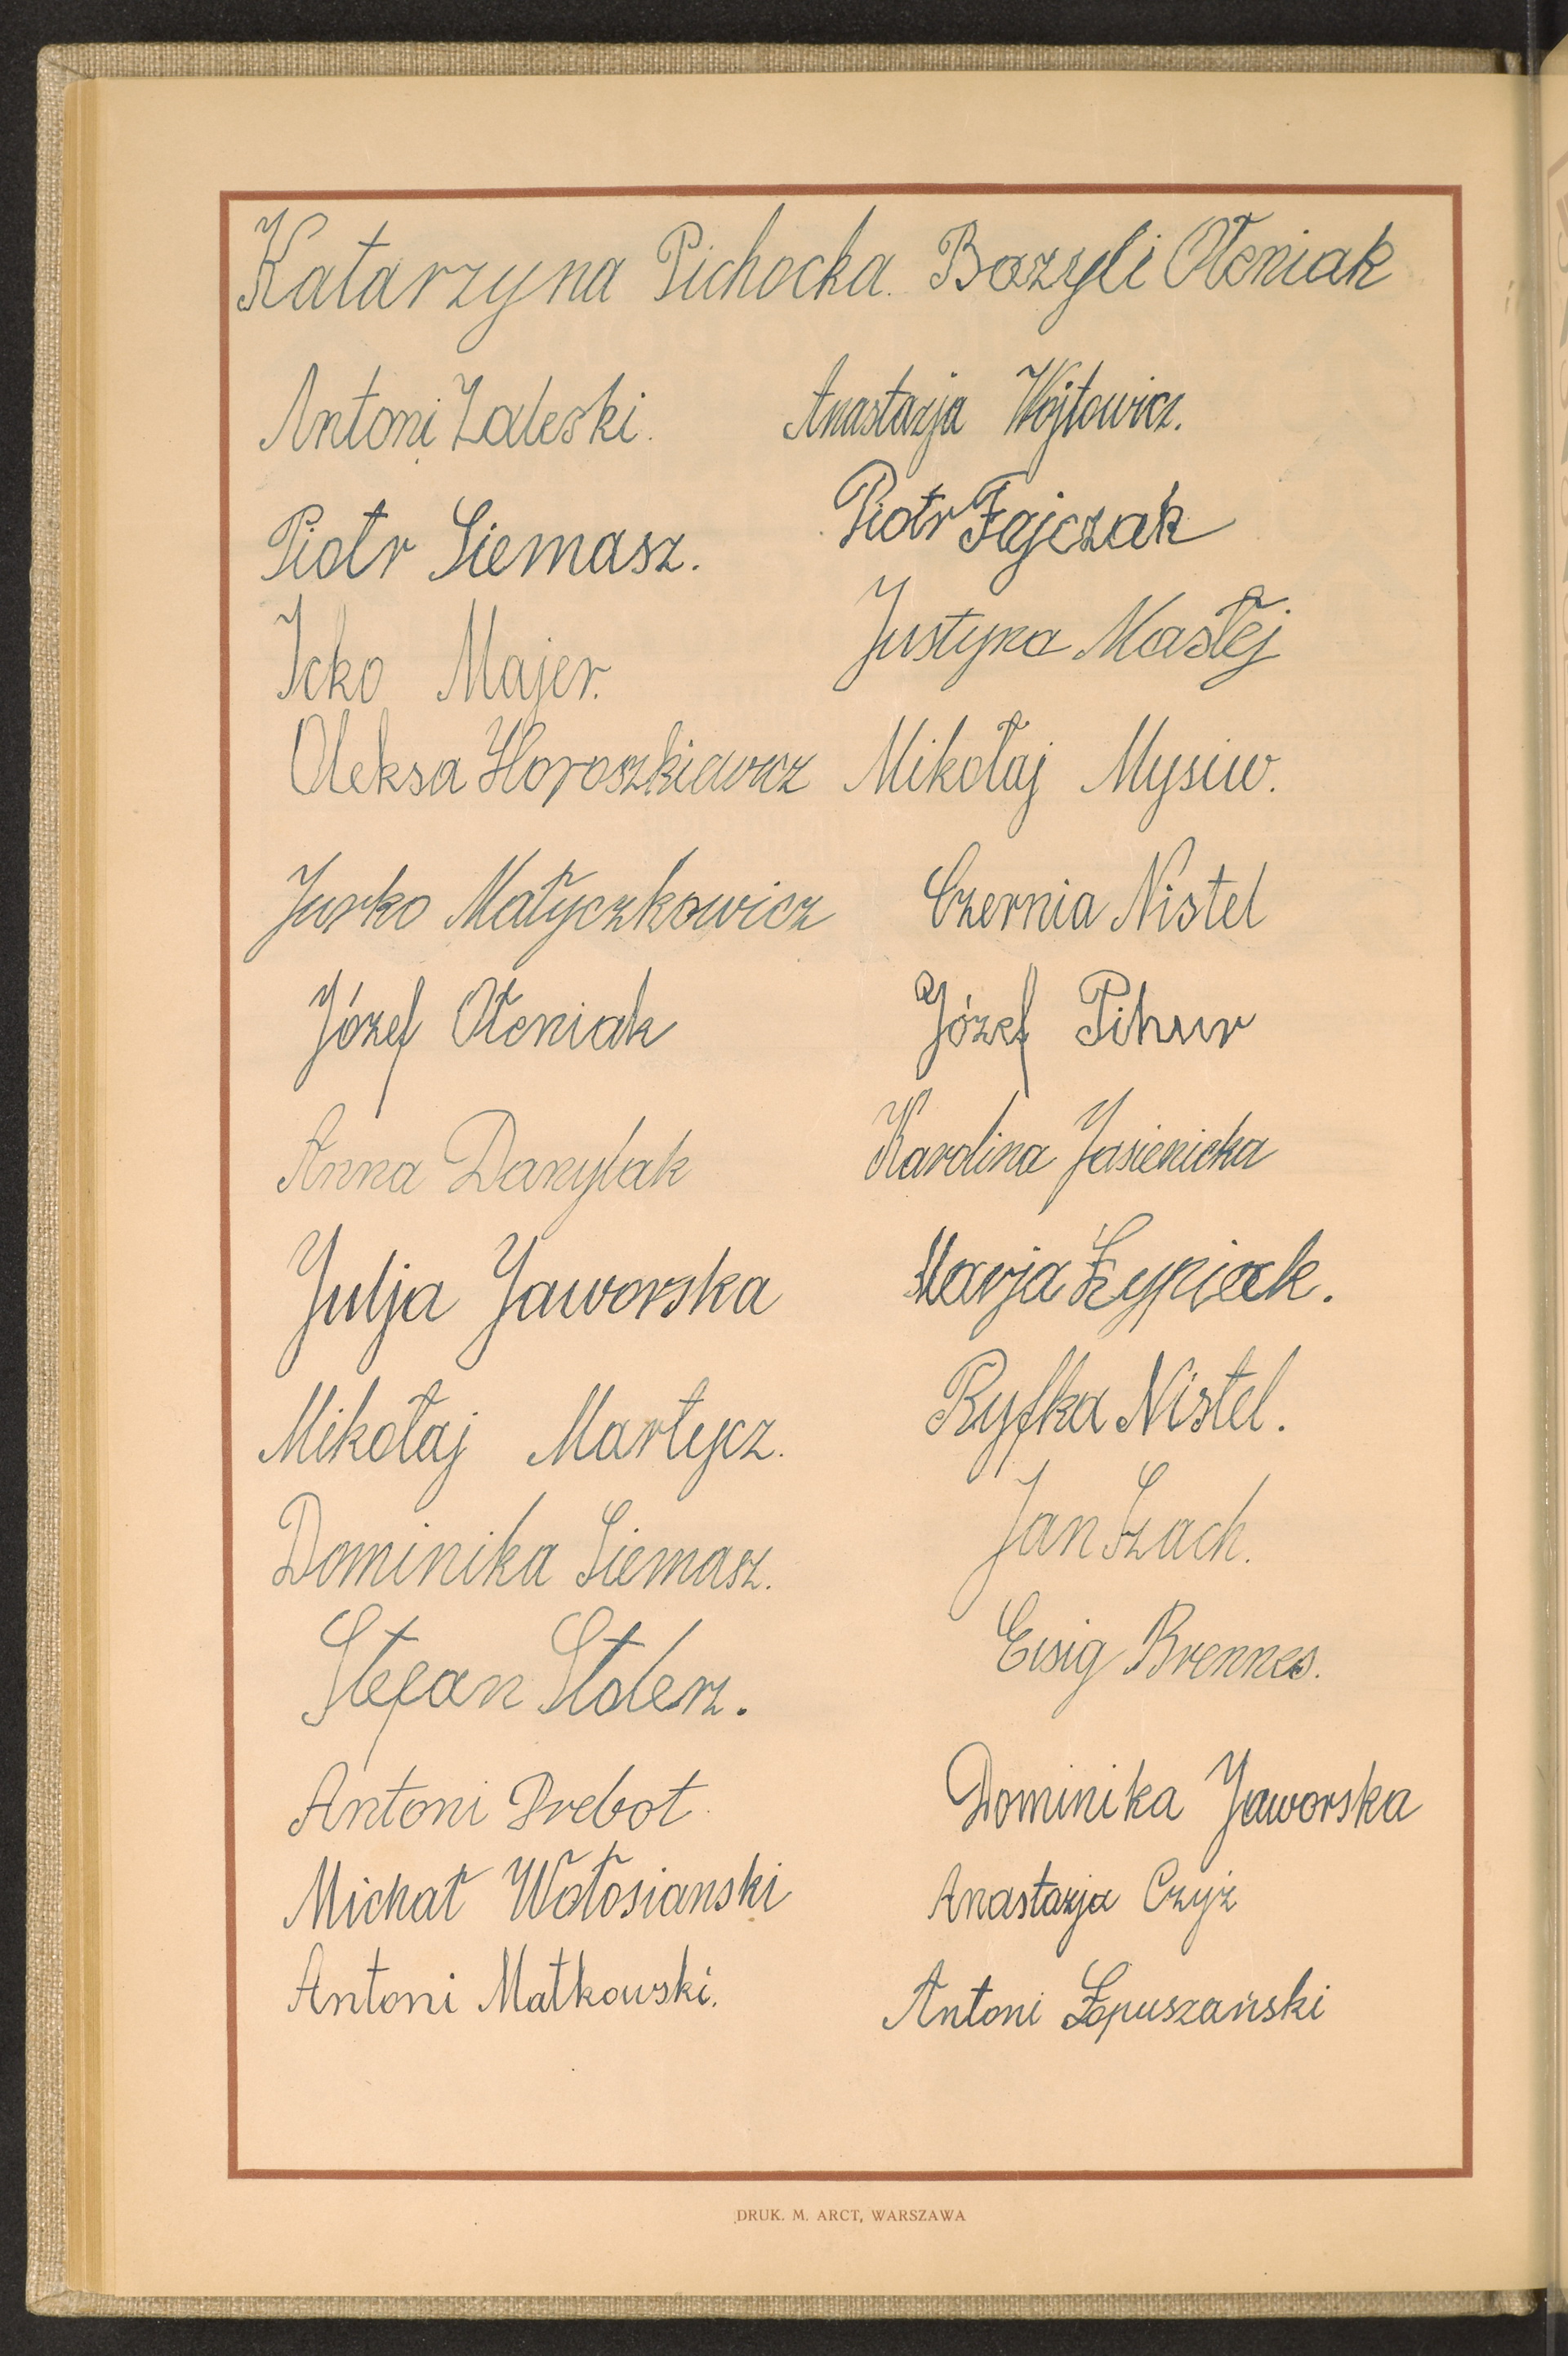 Katarzyna Pichocka. Bazyli Ołeniak
Antoni Zaleski. Anastazja Wójtowicz.
Piotr Siemasz. Piotr Fajczak
Icko Majer. Justyna Masłej
Oleksa Horoszkiewicz Mikołaj Mysiw.
Jurko Matyczkowicz Czernia Nistel
Józef Ołeniak Józef Pihur
Anna Danylak Karolina Jasienicka
Julja Jaworska Marja Łypiack.
Mikołaj Martycz. Ryfka Nistel.
Dominika Siemasz. Jan Szach.
Stefan Stolerz. Eisig Brennes.
Antoni Drebot. Dominika Jaworska
Michał Wołosianski Anastazja Czyż
Antoni Matkowski. Antoni Łopuszański
DRUK. M. ARCT, WARSZAWA